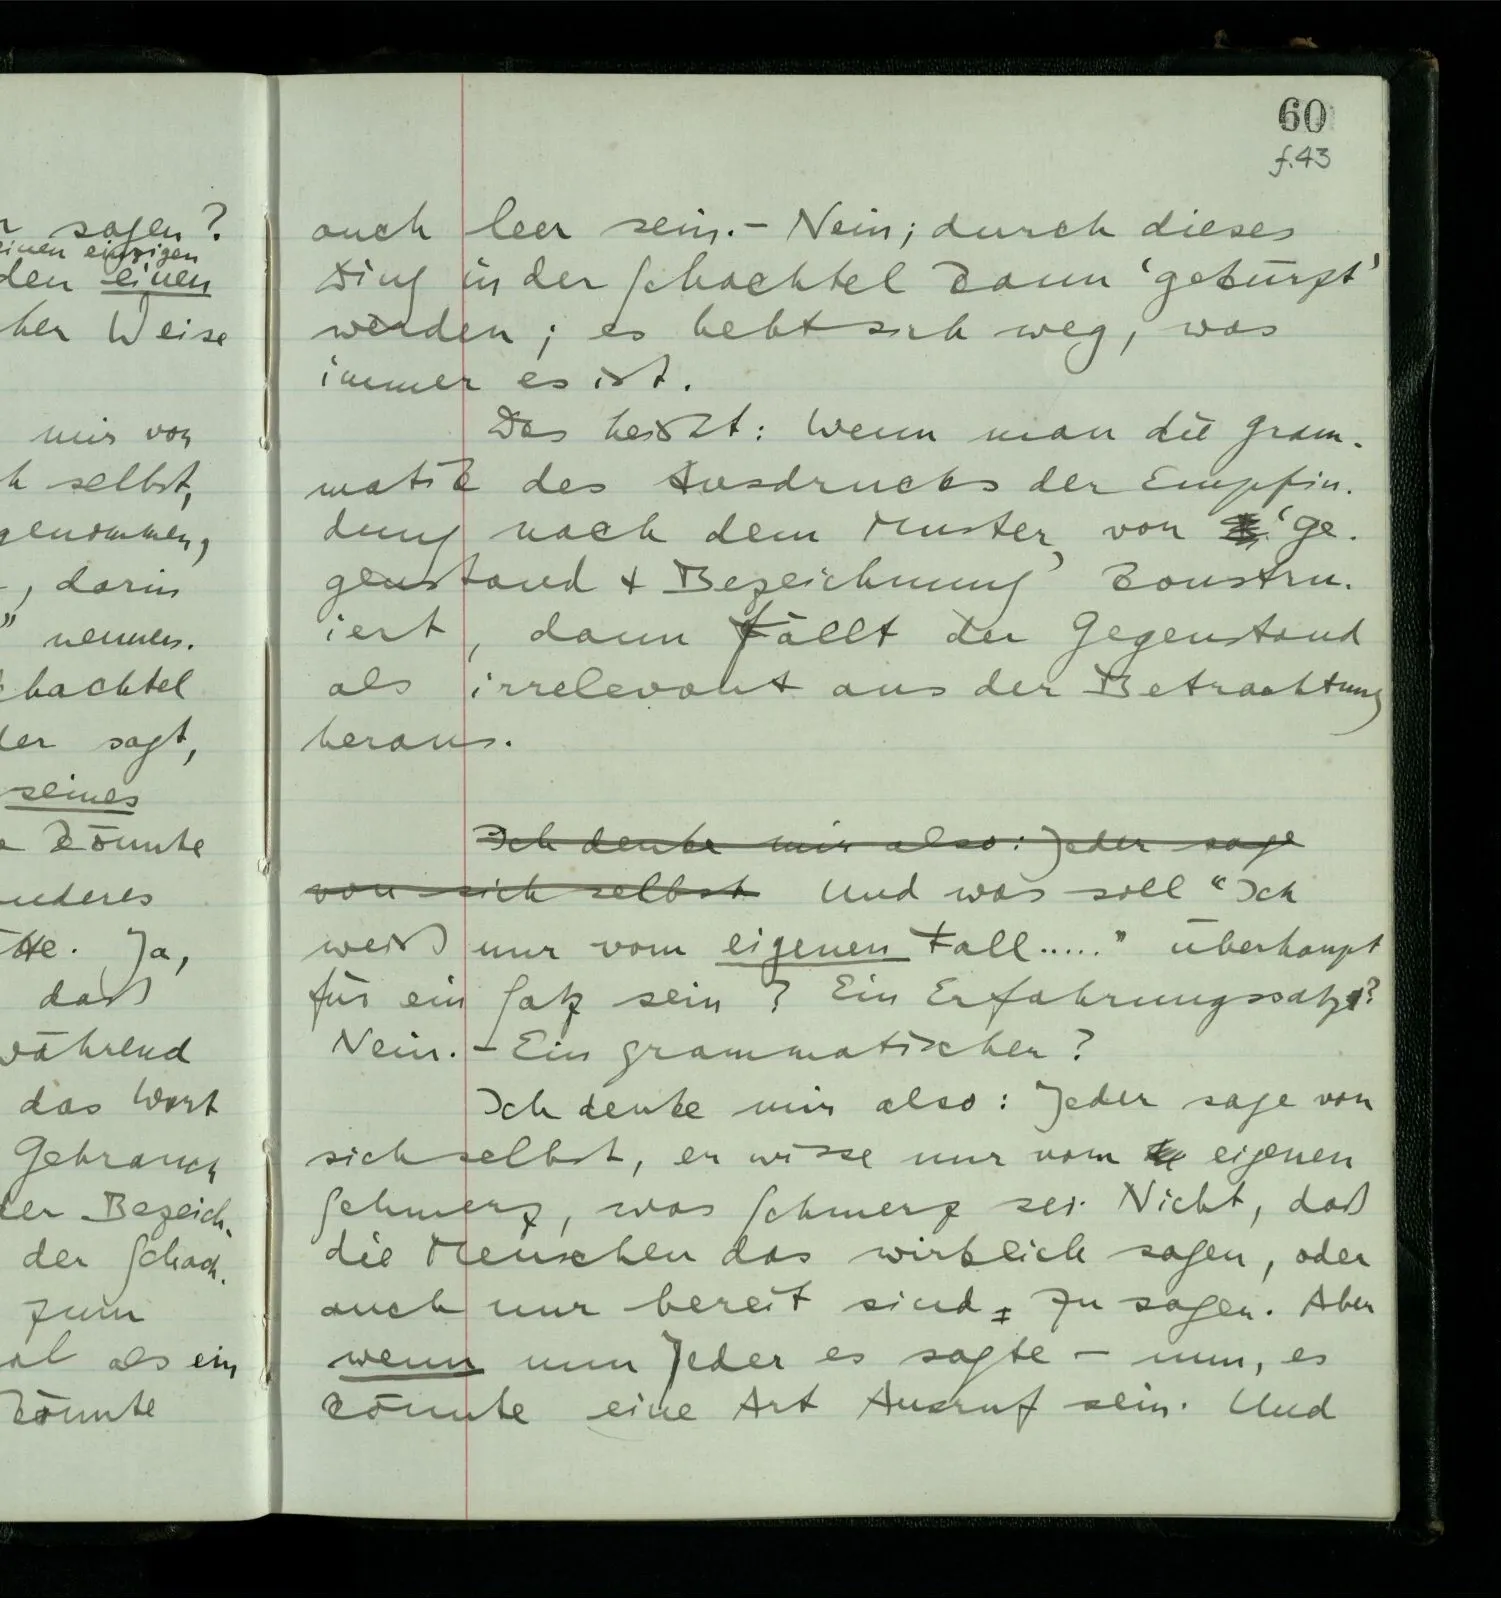 r sagen?
einen einzigen
den einen
her Weise
mir von
h selbst,
genommen,
, darin
" nennen.
chachtel
der sagt,
seines
e könnte
nderes
tte. Ja,
daß
während
das Wort
Gebrauch
der Bezeich-
der Schach-
zum
al als ein
könnte
60
f.43
auch leer sein. – Nein; durch dieses
Ding in der Schachtel kann 'gekürzt'
werden; es hebt sich weg, was
immer es ist.
Das heißt: Wenn man die Gram-
matik des Ausdrucks der Empfin-
dung nach dem Muster, von 'Ge-
genstand & Bezeichnung' konstru-
iert, dann fällt der Gegenstand
als irrelevant aus der Betrachtung
heraus.
Ich denke mir also: Jeder sage
von sich selbst Und was soll "Ich
weiß nur vom eigenen Fall....." überhaupt
für ein Satz sein? Ein Erfahrungssatz?
Nein. – Ein grammatischer?
Ich denke mir also: Jeder sage von
sich selbst, er wisse nur vom eigenen
Schmerz, was Schmerz sei. Nicht, daß
die Menschen das wirklich sagen, oder
auch nur bereit sind, zu sagen. Aber
wenn nun Jeder es sagte – nun, es
könnte eine Art Ausruf sein. Und